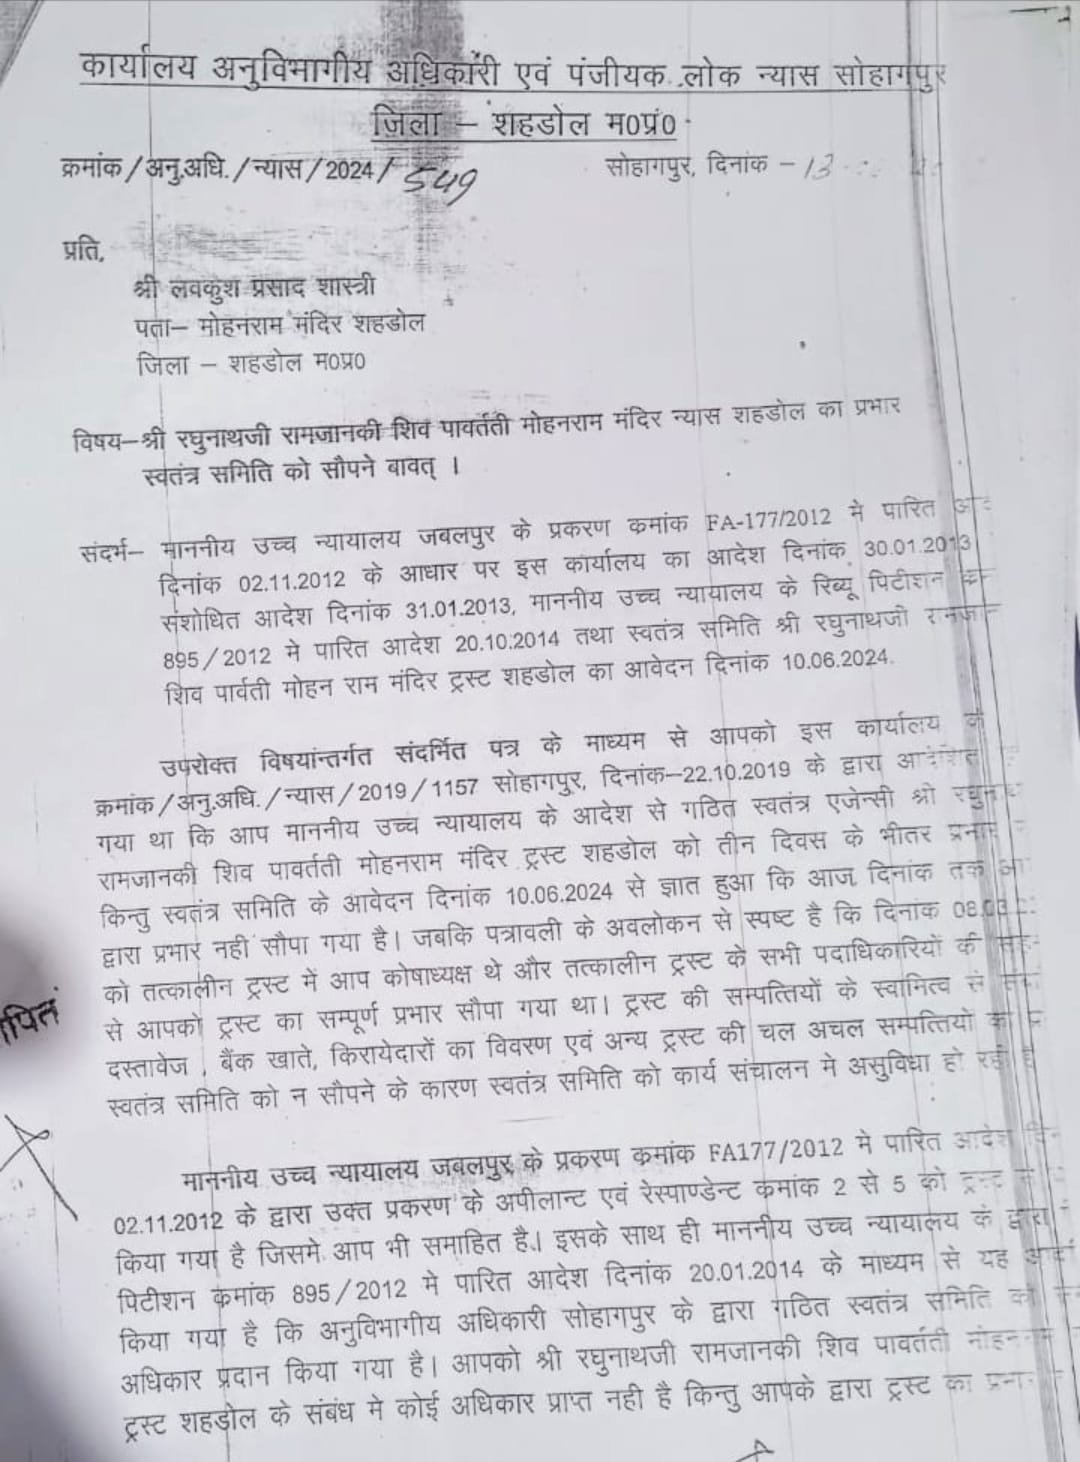 कार्यालय अनुविभागीय अधिकारी एवं पंजीयक लोक न्यास सोहागपुर
जिला – शहडोल म०प्रं०
क्रमांक/अनु.अधि./न्यास/2024/549 सोहागपुर, दिनांक -13
प्रति,
श्री लवकुश प्रसाद शास्त्री
पता– मोहनराम मंदिर शहडोल
जिला – शहडोल म०प्र०
विषय–श्री रघुनाथजी रामजानकी शिव पावर्तती मोहनराम मंदिर न्यास शहडोल का प्रभार
स्वतंत्र समिति को सौपने बावत् ।
संदर्भ– माननीय उच्च न्यायालय जबलपुर के प्रकरण कमांक FA-177/2012 मे पारित
दिनांक 02.11.2012 के आधार पर इस कार्यालय का आदेश दिनांक 30.01.2013
संशोधित आदेश दिनांक 31.01.2013, माननीय उच्च न्यायालय के रिब्यू पिटीशन
895/2012 मे पारित आदेश 20.10.2014 तथा स्वतंत्र समिति श्री रघुनाथजी
शिव पार्वती मोहन राम मंदिर ट्रस्ट शहडोल का आवेदन दिनांक 10.06.2024.
उपरोक्त विषयांन्तर्गत संदर्भित पत्र के माध्यम से आपको इस कार्यालय
क्रमांक/अनु.अधि./न्यास/2019/1157 सोहागपुर, दिनांक–22.10.2019 के द्वारा
गया था कि आप माननीय उच्च न्यायालय के आदेश से गठित स्वतंत्र एजेन्सी श्री
रामजानकी शिव पावर्तती मोहनराम मंदिर ट्रस्ट शहडोल को तीन दिवस के भीतर
किन्तु स्वतंत्र समिति के आवेदन दिनांक 10.06.2024 से ज्ञात हुआ कि आज दिनांक तक
द्वारा प्रभार नही सौपा गया है। जबकि पत्रावली के अवलोकन से स्पष्ट है कि दिनांक 08.03
को तत्कालीन ट्रस्ट में आप कोषाध्यक्ष थे और तत्कालीन ट्रस्ट के सभी पदाधिकारियों की
से आपको ट्रस्ट का सम्पूर्ण प्रभार सौपा गया था। ट्रस्ट की सम्पत्तियों के स्वामित्व से
दस्तावेज , बैंक खाते, किरायेदारों का विवरण एवं अन्य ट्रस्ट की चल अचल सम्पत्तियों
स्वतंत्र समिति को न सौपने के कारण स्वतंत्र समिति को कार्य संचालन मे असुविधा हो रही
माननीय उच्च न्यायालय जबलपुर के प्रकरण कमांक FA177/2012 मे पारित आदेश
02.11.2012 के द्वारा उक्त प्रकरण के अपीलान्ट एवं रेस्पाण्डेन्ट कमांक 2 से 5 को
किया गया है जिसमे आप भी समाहित है। इसके साथ ही माननीय उच्च न्यायालय के द्वारा
पिटीशन कमांक 895/2012 मे पारित आदेश दिनांक 20.01.2014 के माध्यम से यह
किया गया है कि अनुविभागीय अधिकारी सोहागपुर के द्वारा गठित स्वतंत्र समिति
अधिकार प्रदान किया गया है। आपको श्री रघुनाथजी रामजानकी शिव पावर्तती
ट्रस्ट शहडोल के संबंध मे कोई अधिकार प्राप्त नही है किन्तु आपके द्वारा ट्रस्ट का